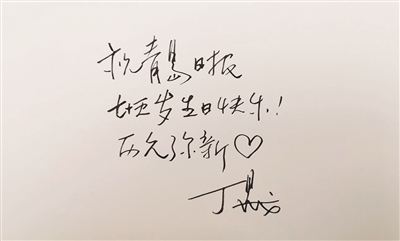 祝青岛日报
七十五岁生日快乐！
历久弥新♡
丁